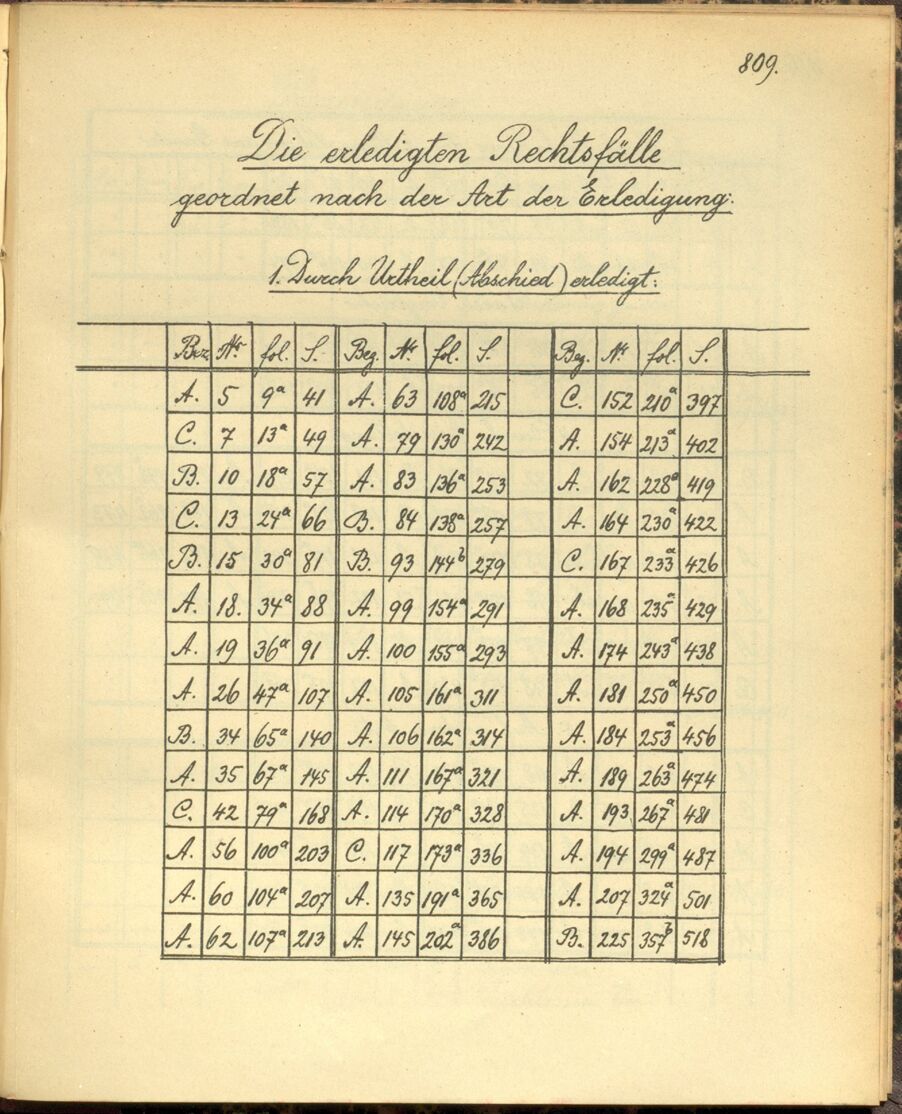 809.
Die erledigten Rechtsfälle
geordnet nach der Art der Erledigung:
1. Durch Urtheil (Abschied) erledigt:
Bez. Nr. fol. S. Bez. Nr fol. S. Bez. Nr fol. S.
A. 5 9a 41 A. 63 108a 215 C. 152 210a 397
C. 7 13a 49 A. 79 130a 242 A. 154 213a 402
B. 10 18a 57 A. 83 136a 253 A. 162 228a 419
C. 13 24a 66 B. 84 138a 257 A. 164 230a 422
B. 15 30a 81 B. 93 144b 279 C. 167 233a 426
A. 18. 34a 88 A. 99 154a 291 A. 168 235a 429
A. 19 36a 91 A. 100 155a 293 A. 174 243a 438
A. 26 47a 107 A. 105 161a 311 A. 181 250a 450
B. 34 65a 140 A. 106 162a 314 A. 184 253a 456
A. 35 67a 145 A. 111 167a 321 A. 189 263a 474
C. 42 79a 168 A. 114 170a 328 A. 193 267a 481
A. 56 100a 203 C. 117 173a 336 A. 194 299a 487
A. 60 104a 207 A. 135 191a 365 A. 207 324a 501
A. 62 107a 213 A. 145 202a 386 B. 225 357b 518